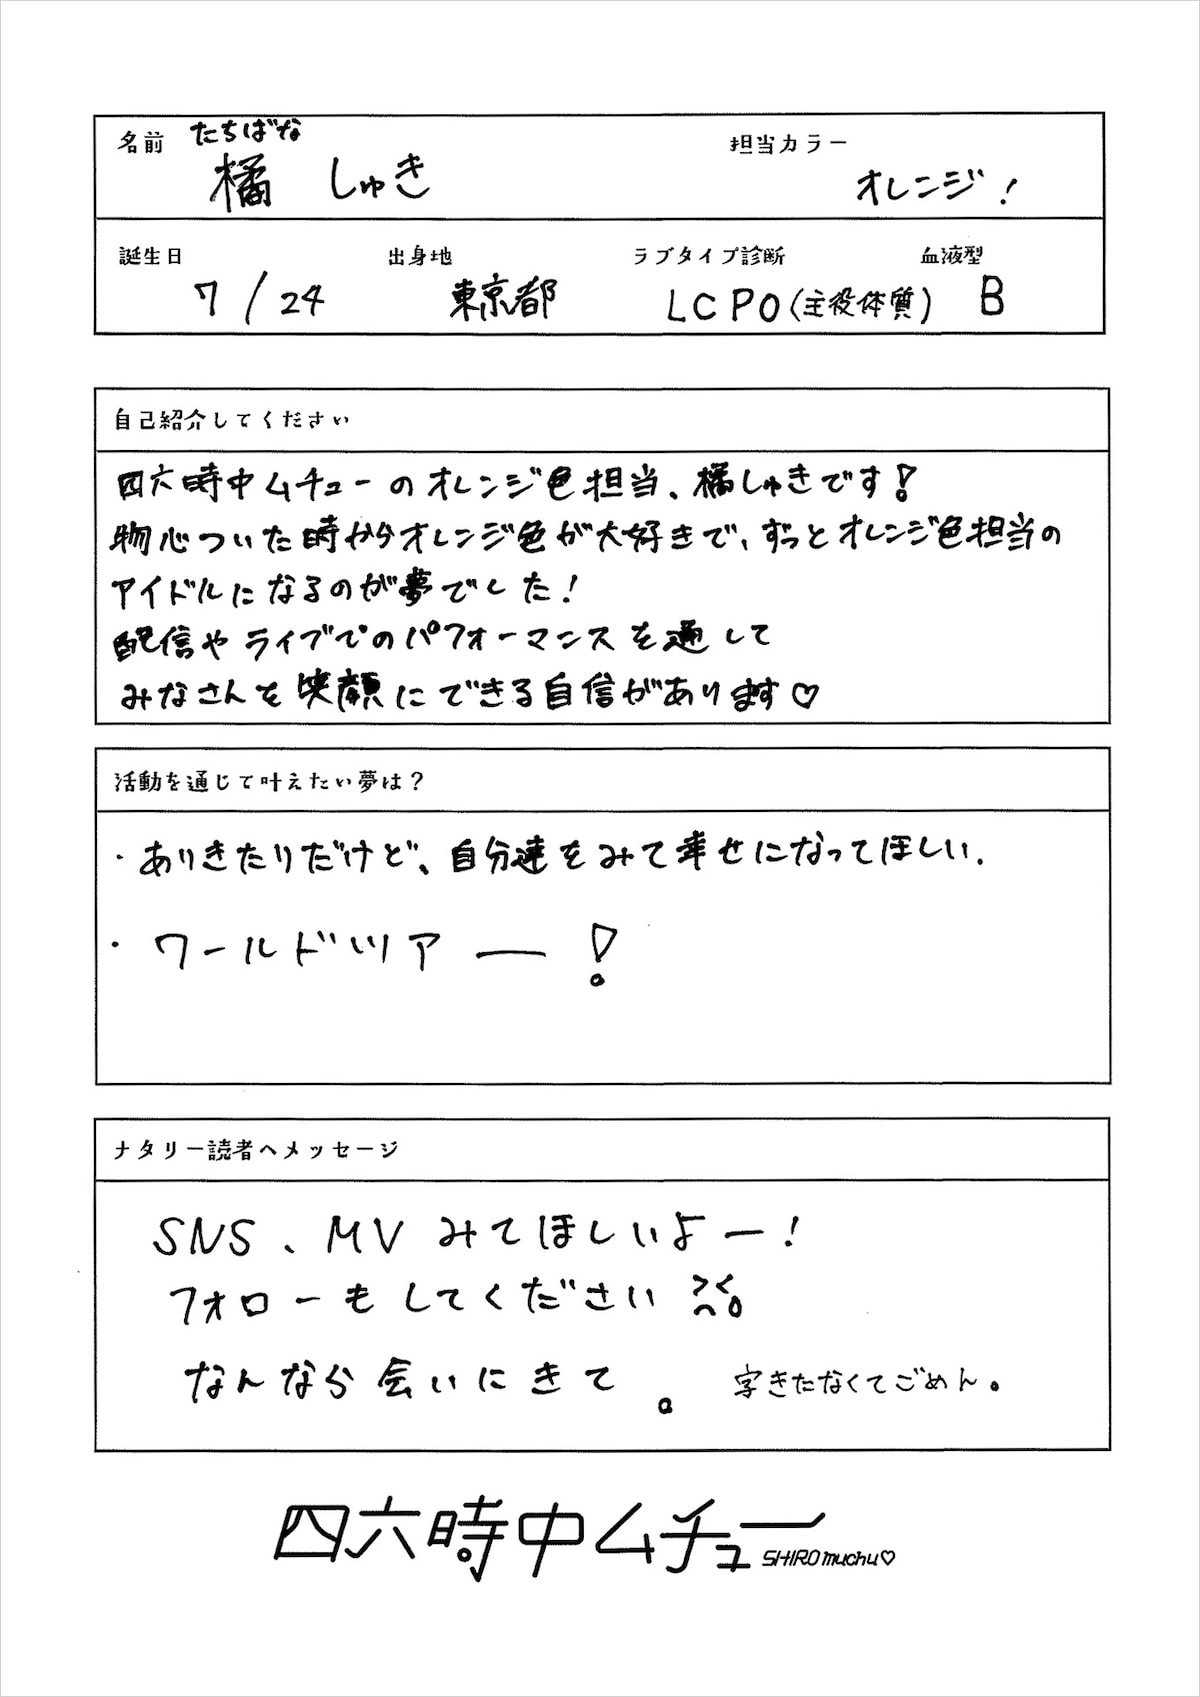 名前 たちばな 橘 しゅき 担当カラー オレンジ!
誕生日 7/24 出身地 東京都 ラブタイプ診断 LCPO(主役体質) 血液型 B
自己紹介してください
四六時中ムチューのオレンジ色担当、橘しゅきです!
物心ついた時からオレンジ色が大好きで、ずっとオレンジ色担当の
アイドルになるのが夢でした!
配信やライブでのパフォーマンスを通して
みなさんを笑顔にできる自信があります♡
活動を通じて叶えたい夢は?
・ありきたりだけど、自分達をみて幸せになってほしい.
・ワールドツアー!
ナタリー読者へメッセージ
SNS、MVみてほしいよー!
フォローもしてください
なんなら会いにきて。 字きたなくてごめん。
四六時中ムチュー SHIRO muchu♡